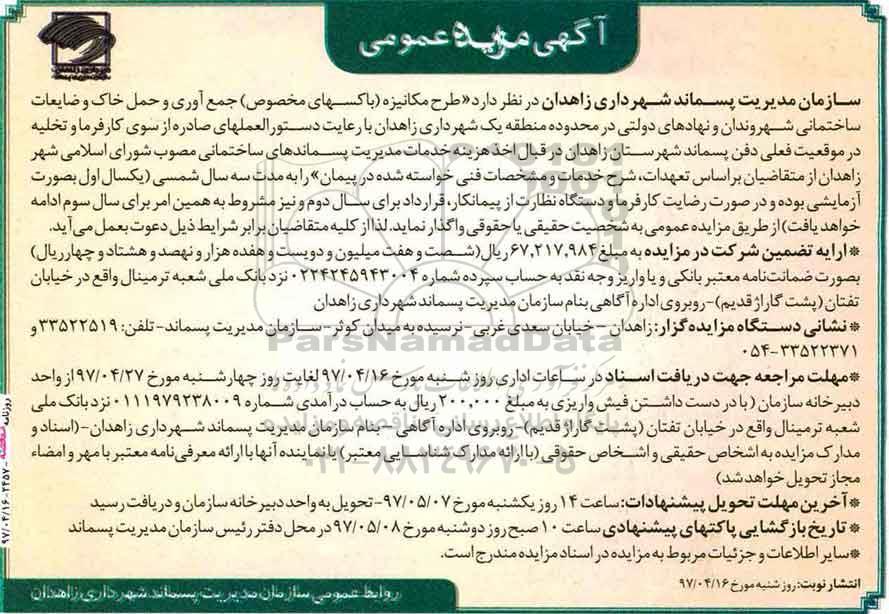 آگهی مزایده عمومی
شهرداری زاهدان
سازمان مدیریت پسماند شهرداری زاهدان در نظر دارد «طرح مکانیزه (باکسهای مخصوص) جمع آوری و حمل خاک و ضایعات
ساختمانی شهروندان و نهادهای دولتی در محدوده منطقه یک شهرداری زاهدان با رعایت دستورالعملهای صادره از سوی کارفرما و تخلیه
در موقعیت فعلی دفن پسماند شهرستان زاهدان در قبال اخذ هزینه خدمات مدیریت پسماندهای ساختمانی مصوب شورای اسلامی شهر
زاهدان از متقاضیان براساس تعهدات، شرح خدمات و مشخصات فنی خواسته شده در پیمان» را به مدت سه سال شمسی (یکسال اول بصورت
آزمایشی بوده و در صورت رضایت کارفرما و دستگاه نظارت از پیمانکار، قرارداد برای سال دوم و نیز مشروط به همین امر برای سال سوم ادامه
خواهد یافت) از طریق مزایده عمومی به شخصیت حقیقی یا حقوقی واگذار نماید. لذا از کلیه متقاضیان برابر شرایط ذیل دعوت بعمل می آید.
*ارایه تضمین شرکت در مزایده به مبلغ ۶۷,۲۱۷,۹۸۴ ریال (شصت و هفت میلیون و دویست و هفده هزار و نهصد و هشتاد و چهار ریال)
بصورت ضمانت نامه معتبر بانکی و یا واریز وجه نقد به حساب سپرده شماره ۰۲۲۴۲۴۵۹۴۳۰۰۴ نزد بانک ملی شعبه ترمینال واقع در خیابان
تفتان (پشت گاراژ قدیم)-روبروی اداره آگاهی بنام سازمان مدیریت پسماند شهرداری زاهدان
*نشانی دستگاه مزایده گزار: زاهدان – خیابان سعدی غربی-نرسیده به میدان کوثر-سازمان مدیریت پسماند-تلفن: ۳۳۵۲۲۵۱۹ و
۰۵۴-۳۳۵۲۲۳۷۱
*مهلت مراجعه جهت دریافت اسناد در ساعات اداری روز شنبه مورخ ۹۷/۰۴/۱۶ لغایت روز چهارشنبه مورخ ۹۷/۰۴/۲۷ از واحد
دبیرخانه سازمان (با در دست داشتن فیش واریزی به مبلغ ۲۰۰,۰۰۰ ریال به حساب درآمدی شماره ۰۱۱۱۹۷۹۲۳۸۰۰۹ نزد بانک ملی
شعبه ترمینال واقع در خیابان تفتان (پشت گاراژ قدیم)-روبروی اداره آگاهی – بنام سازمان مدیریت پسماند شهرداری زاهدان-(اسناد و
مدارک مزایده به اشخاص حقیقی و اشخاص حقوقی (با ارائه مدارک شناسایی معتبر) یا نماینده آنها با ارائه معرفی نامه معتبر با مهر و امضاء
مجاز تحویل خواهد شد)
*آخرین مهلت تحویل پیشنهادات: ساعت ۱۴ روز یکشنبه مورخ ۹۷/۰۵/۰۷-تحویل به واحد دبیرخانه سازمان و دریافت رسید
* تاریخ بازگشایی پاکتهای پیشنهادی ساعت ۱۰ صبح روز دوشنبه مورخ ۹۷/۰۵/۰۸ در محل دفتر رئیس سازمان مدیریت پسماند
*سایر اطلاعات و جزئیات مربوط به مزایده در اسناد مزایده مندرج است.
انتشار نوبت: روز شنبه مورخ ۹۷/۰۴/۱۶
روابط عمومی سازمان مدیریت پسماند شهرداری زاهدان
ParsNamadData
۰۲۱-۸۸۳۴۹۶۷۰-۵
روزنامه
۹۷/۰۴/۱۶-۲۴۵۷